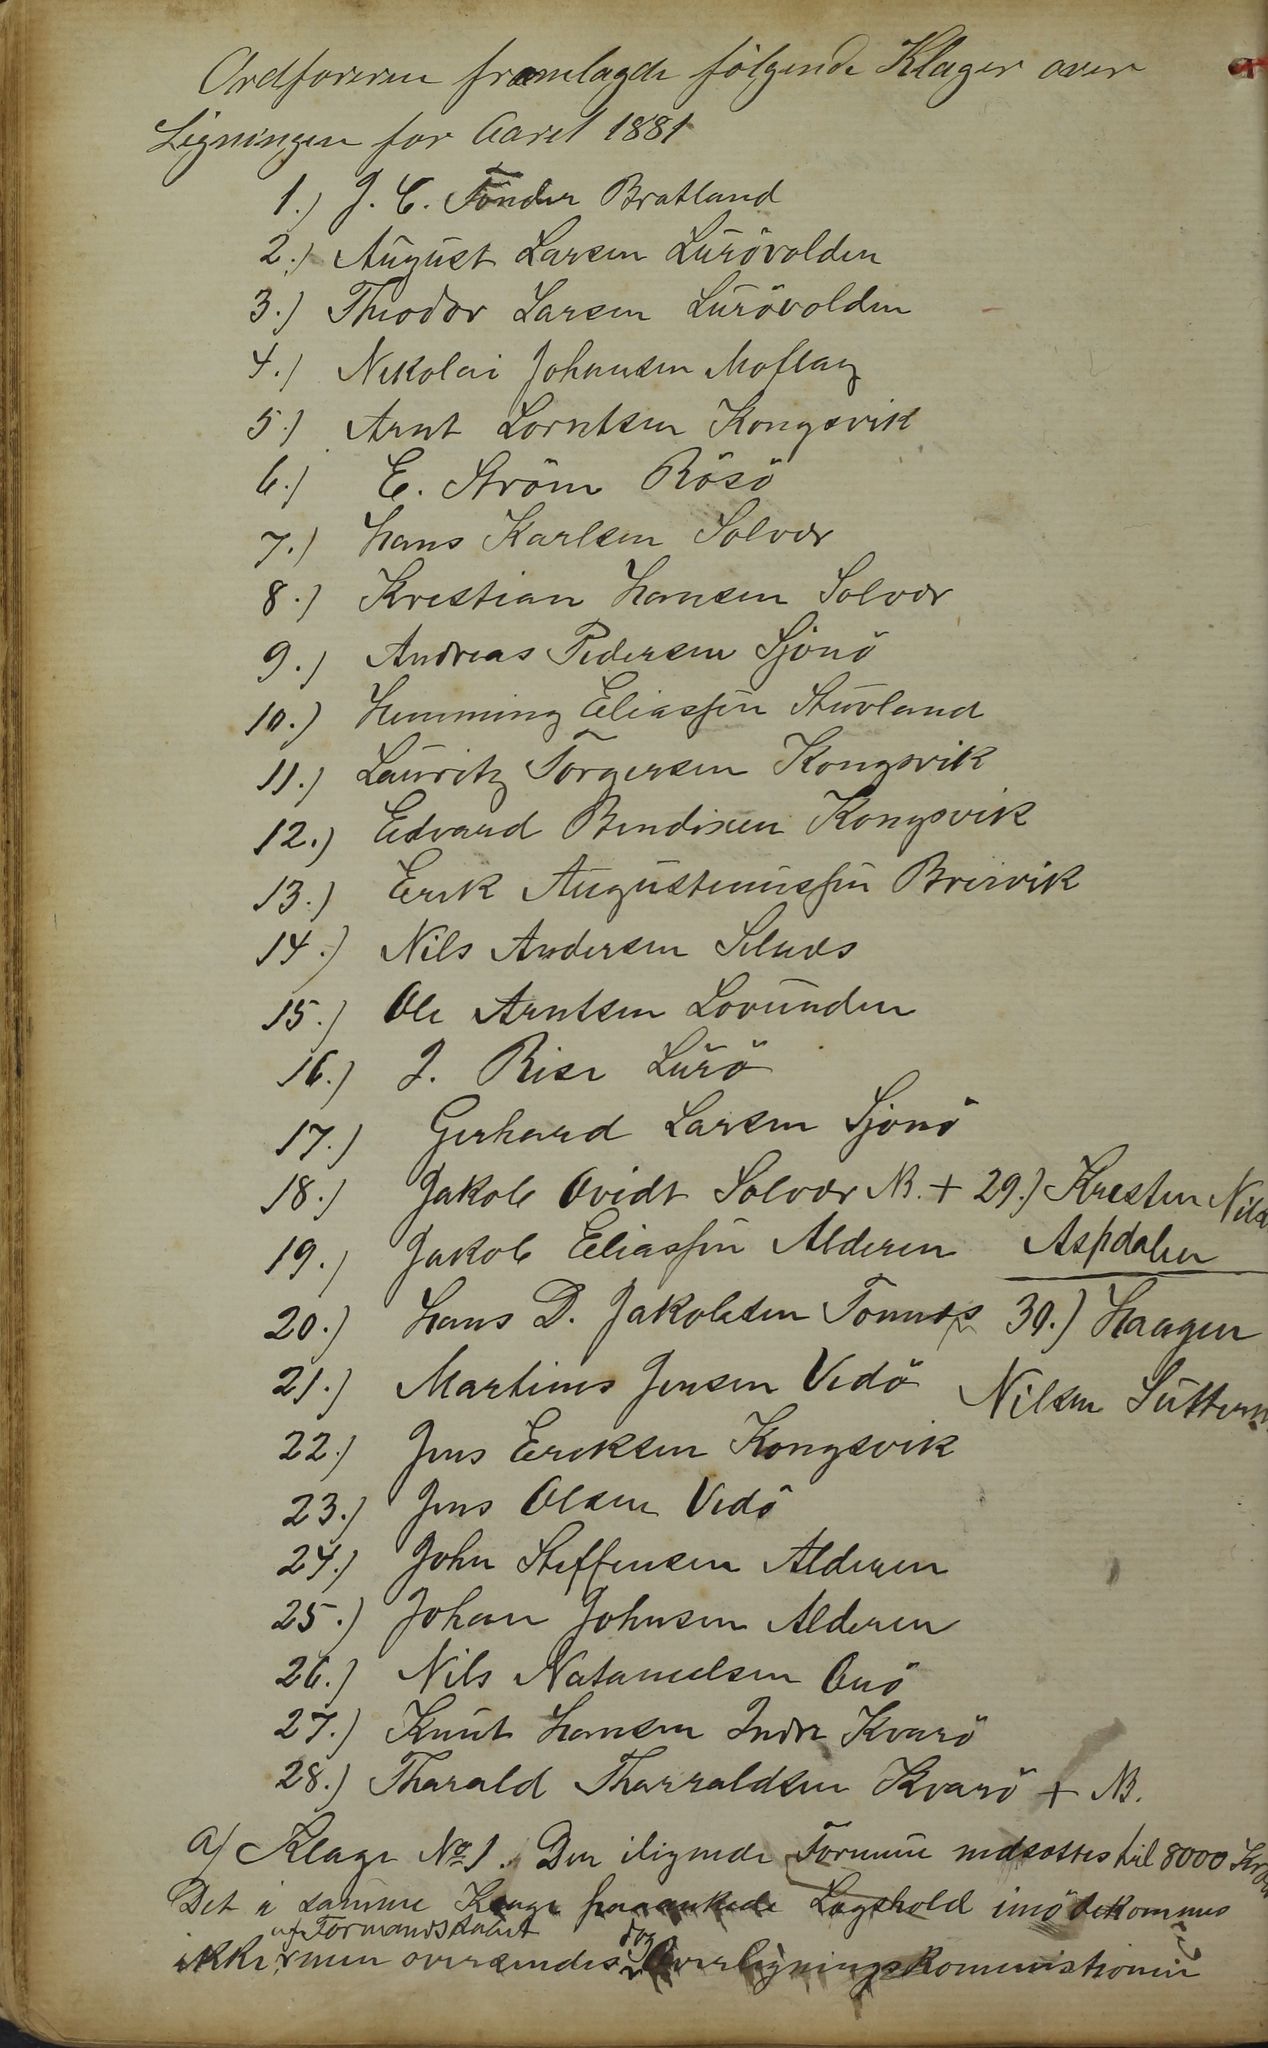 Ordföreren fremlagde følgende Klager over
Ligningen for Aaret 1881
1.) J. C. Tönder Bratland
2.) August Larsen Lurövolden
3.) Theodor Larsen Lurövolden
4.) Nekolai Johansen Moflag
5.) Arnt Lorntsen Kongsvik
6.) E. Ström Rösö
7.) Hans Karlsen Solvær
8.) Krestian Hansen Solvær
9.) Andreas Pedersen Sjonö
10.) Hemming Eliassen Stuvland
11.) Lauritz Torgersen Kongsvik
12.) Edvard Bendixen Kongsvik
13.) Erik Augustinussen Breivik
14.) Nils Andersen Selnæs
15.) Ole Arntsen Lovunden
16.) J. Rise Lurö
17.) Gerhard Larsen Sjonö
18.) Jakob Qvidt Solvær NB. + 29.) Kresten Nils
19.) Jakob Eliassen Alderen Aspdalen
20.) Hans D. Jakobsen Tonnes 30.) Haagen
21.) Martinus Jensen Vedö Nilsen Sutteren
22.) Jens Ereksen Kongsvik
23.) Jens Olsen Vedö
24.) John Steffensen Alderen
25.) Johan Johnsen Alderen
26.) Nils Natanælsen Onö
27.) Knut Hansen Indre Kvarö
28.) Tharald Tharraldsen Kvarö + NB.
a) Klage No 1. Den ilignede Formue nedsættes til 8000 Kroner
Det i samme Klage paaankede Lægshold imödekommes
ikke af Formandskabet, men oversendes dog Overligningskommistionen